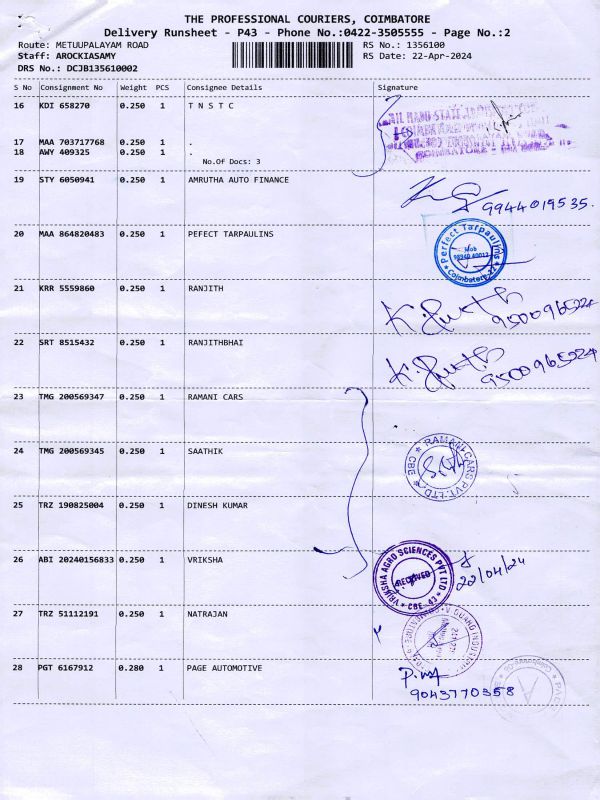 THE PROFESSIONAL COURIERS, COIMBATORE
Delivery Runsheet - P43 - Phone No.:0422-3505555 - Page No.:2
Route: METUUPALAYAM ROAD RS No.: 1356100
Staff: AROCKIASAMY RS Date: 22-Apr-2024
DRS No.: DCJB135610002
S No Consignment No Weight PCS Consignee Details Signature
16 KDI 658270 0.250 1 T N S T C
17 MAA 703717768 0.250 1 .
18 AWY 409325 0.250 1 .
No.Of Docs: 3
19 STY 6050941 0.250 1 AMRUTHA AUTO FINANCE
9944019535.
20 MAA 864820483 0.250 1 PEFECT TARPAULINS
Perfect Tarpaulins
Mob
Coimbatore
21 KRR 5559860 0.250 1 RANJITH
9500965224
22 SRT 8515432 0.250 1 RANJITHBHAI
9500965224
23 TMG 200569347 0.250 1 RAMANI CARS
24 TMG 200569345 0.250 1 SAATHIK
RAMANI CARS PVT. LTD
CBE
25 TRZ 190825004 0.250 1 DINESH KUMAR
26 ABI 20240156833 0.250 1 VRIKSHA
VRIKSHA AGRO SCIENCES PVT LTD
RECEIVED
CBE - 43
22/04/24
27 TRZ 51112191 0.250 1 NATRAJAN
28 PGT 6167912 0.280 1 PAGE AUTOMOTIVE
9043770358